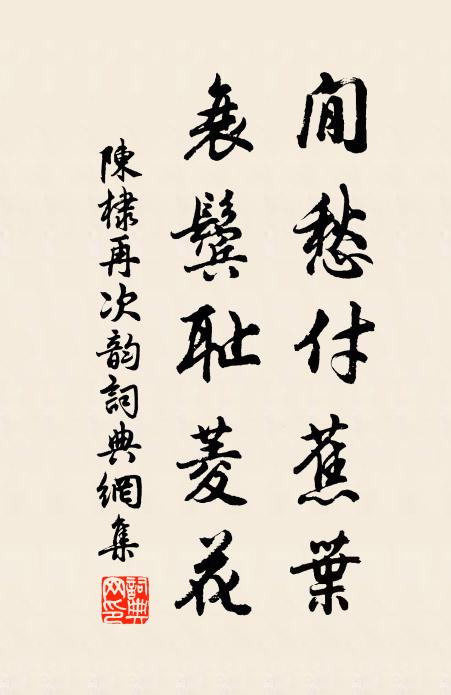 閒愁付蕉葉
衰鬢耻菱花
陳棣再次韵詞典網集
詞典网印